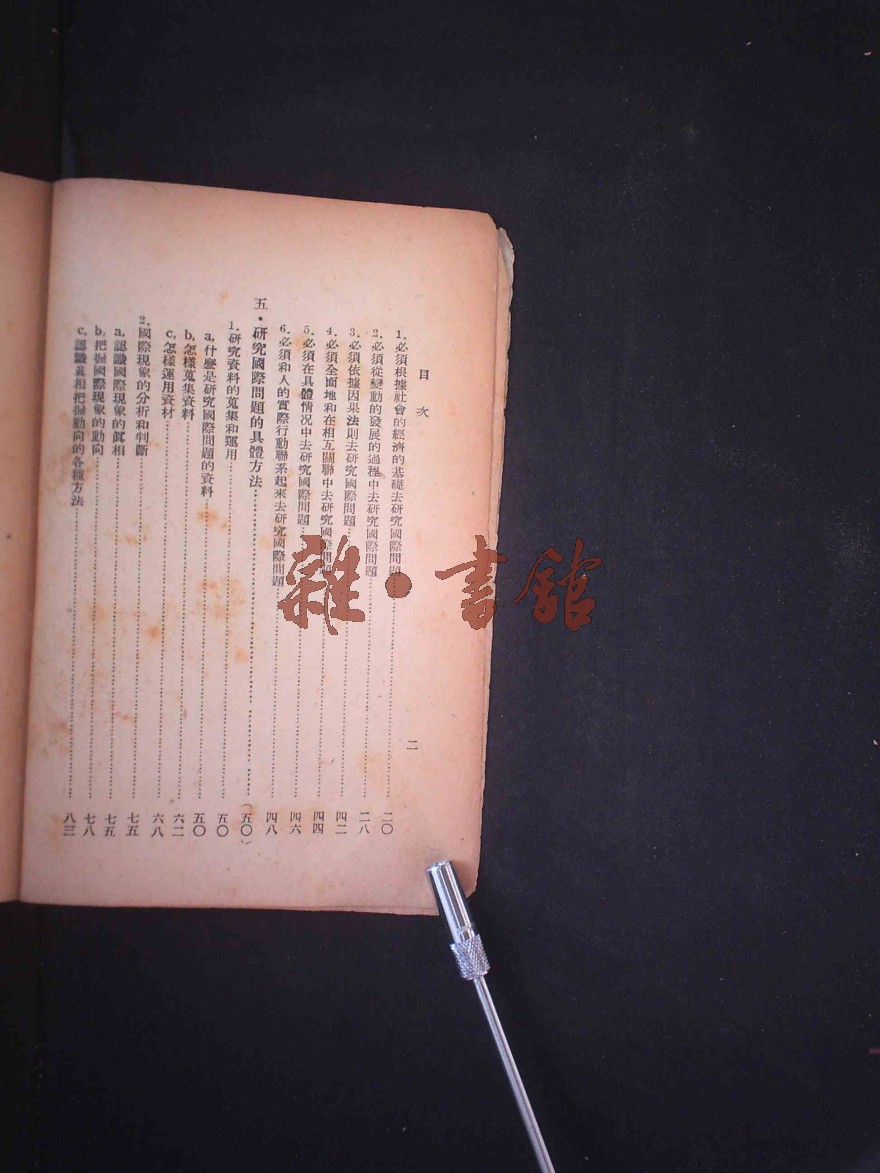 目次
二
1. 必須根據社會的經濟的基礎去研究國際問題……二〇
2. 必須從變動的發展的過程中去研究國際問題……二八
3. 必須依據因果法則去研究國際問題……四二
4. 必須全面地和在相互關聯中去研究國際問題……四四
5. 必須在具體情况中去研究國際問題……四六
6. 必須和人的實際行動聯系起來去研究國際問題……四八
五・研究國際問題的具體方法……(五〇)
1. 研究資料的蒐集和運用……五〇
a, 什麼是研究國際問題的資料……五〇
b, 怎樣蒐集資料……六二
c, 怎樣運用資材……六八
2. 國際現象的分析和判斷……七五
a, 認識國際現象的眞相……七五
b, 把握國際現象的動向……七八
c, 認識眞相把握動向的各種方法……八三
雜・書館